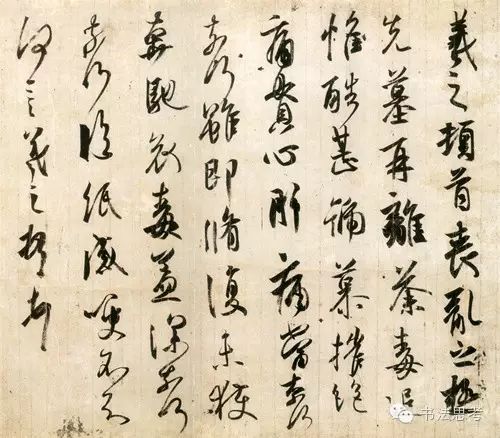 羲之頓首喪亂之極
先墓再離荼毒追
惟酷甚號慕摧絕
痛貫心肝痛當奈何
奈何雖即脩復未獲
奔馳哀毒益深奈何
奈何臨紙感哽不知
何言羲之頓首
书法思考